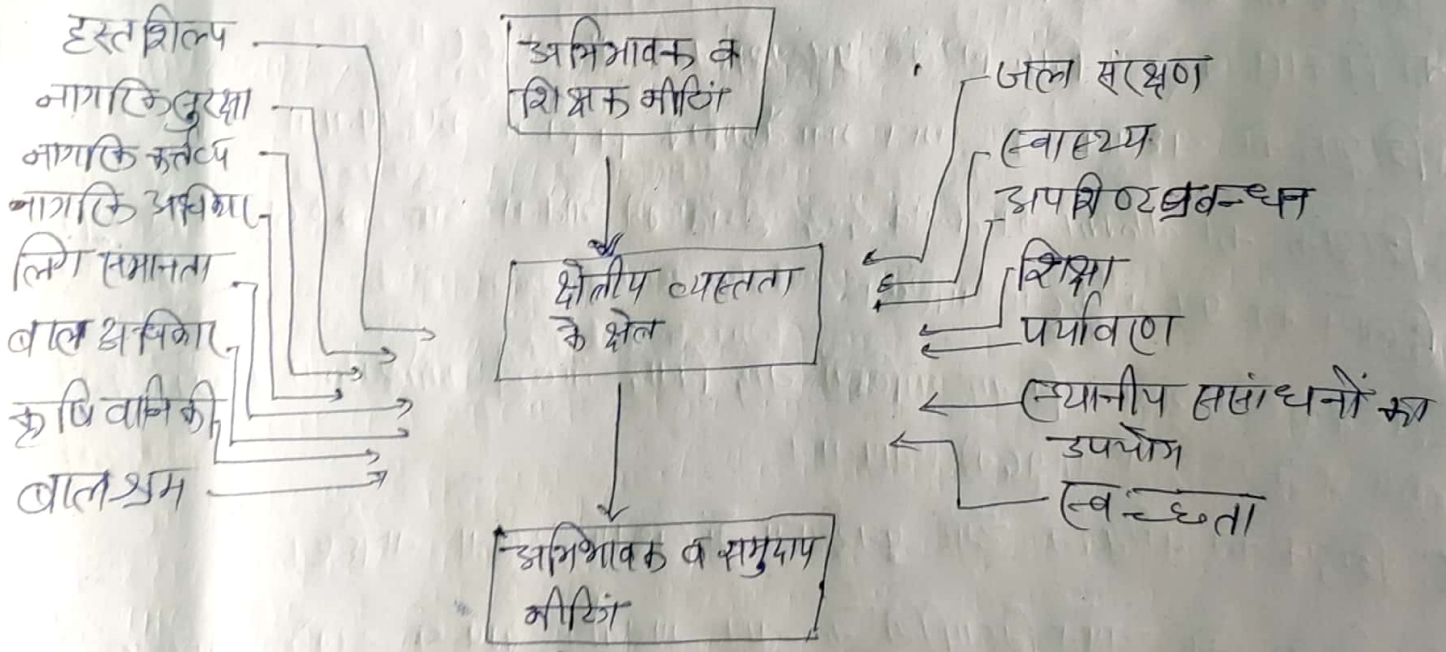 हस्तशिल्प
नागरिक सुरक्षा
नागरिक कर्तव्य
नागरिक अधिकार
लिंग समानता
बाल अधिकार
कृषि वानिकी
बालश्रम
अभिभावक व
शिक्षक मीटिंग
क्षेत्रीय व्यस्तता
के क्षेत्र
अभिभावक व समुदाय
मीटिंग
जल संरक्षण
स्वास्थ्य
अपशिष्ट प्रबन्धन
शिक्षा
पर्यावरण
स्थानीय संसाधनों का
उपयोग
स्वच्छता